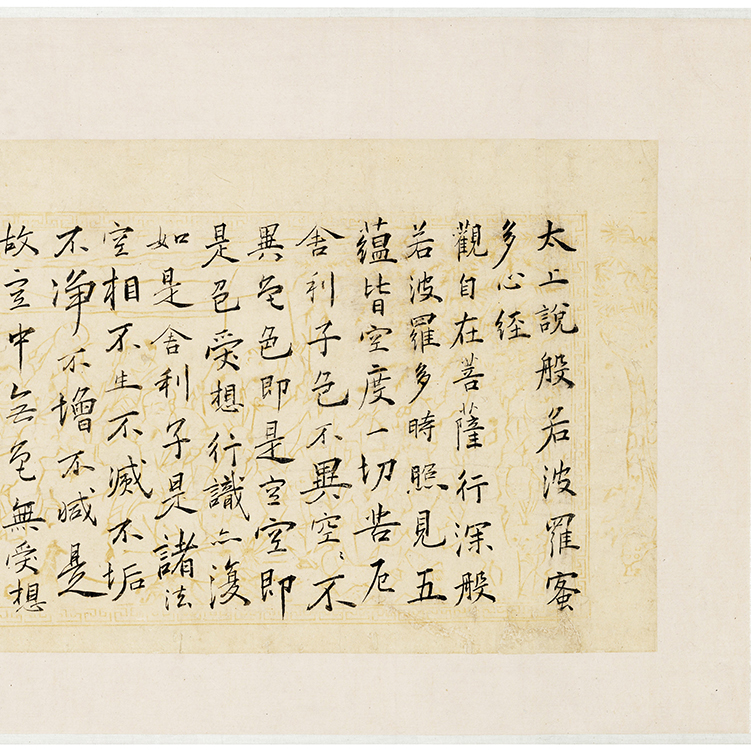 太上說般若波羅蜜
多心経
觀自在菩薩行深般
若波羅多時照見五
蘊皆空度一切苦厄
舍利子色不異空〻不
異色色即是空空即
是色受想行識亦復
如是舍利子是諸法
空相不生不滅不垢
不淨不增不減是
故空中無色無受想